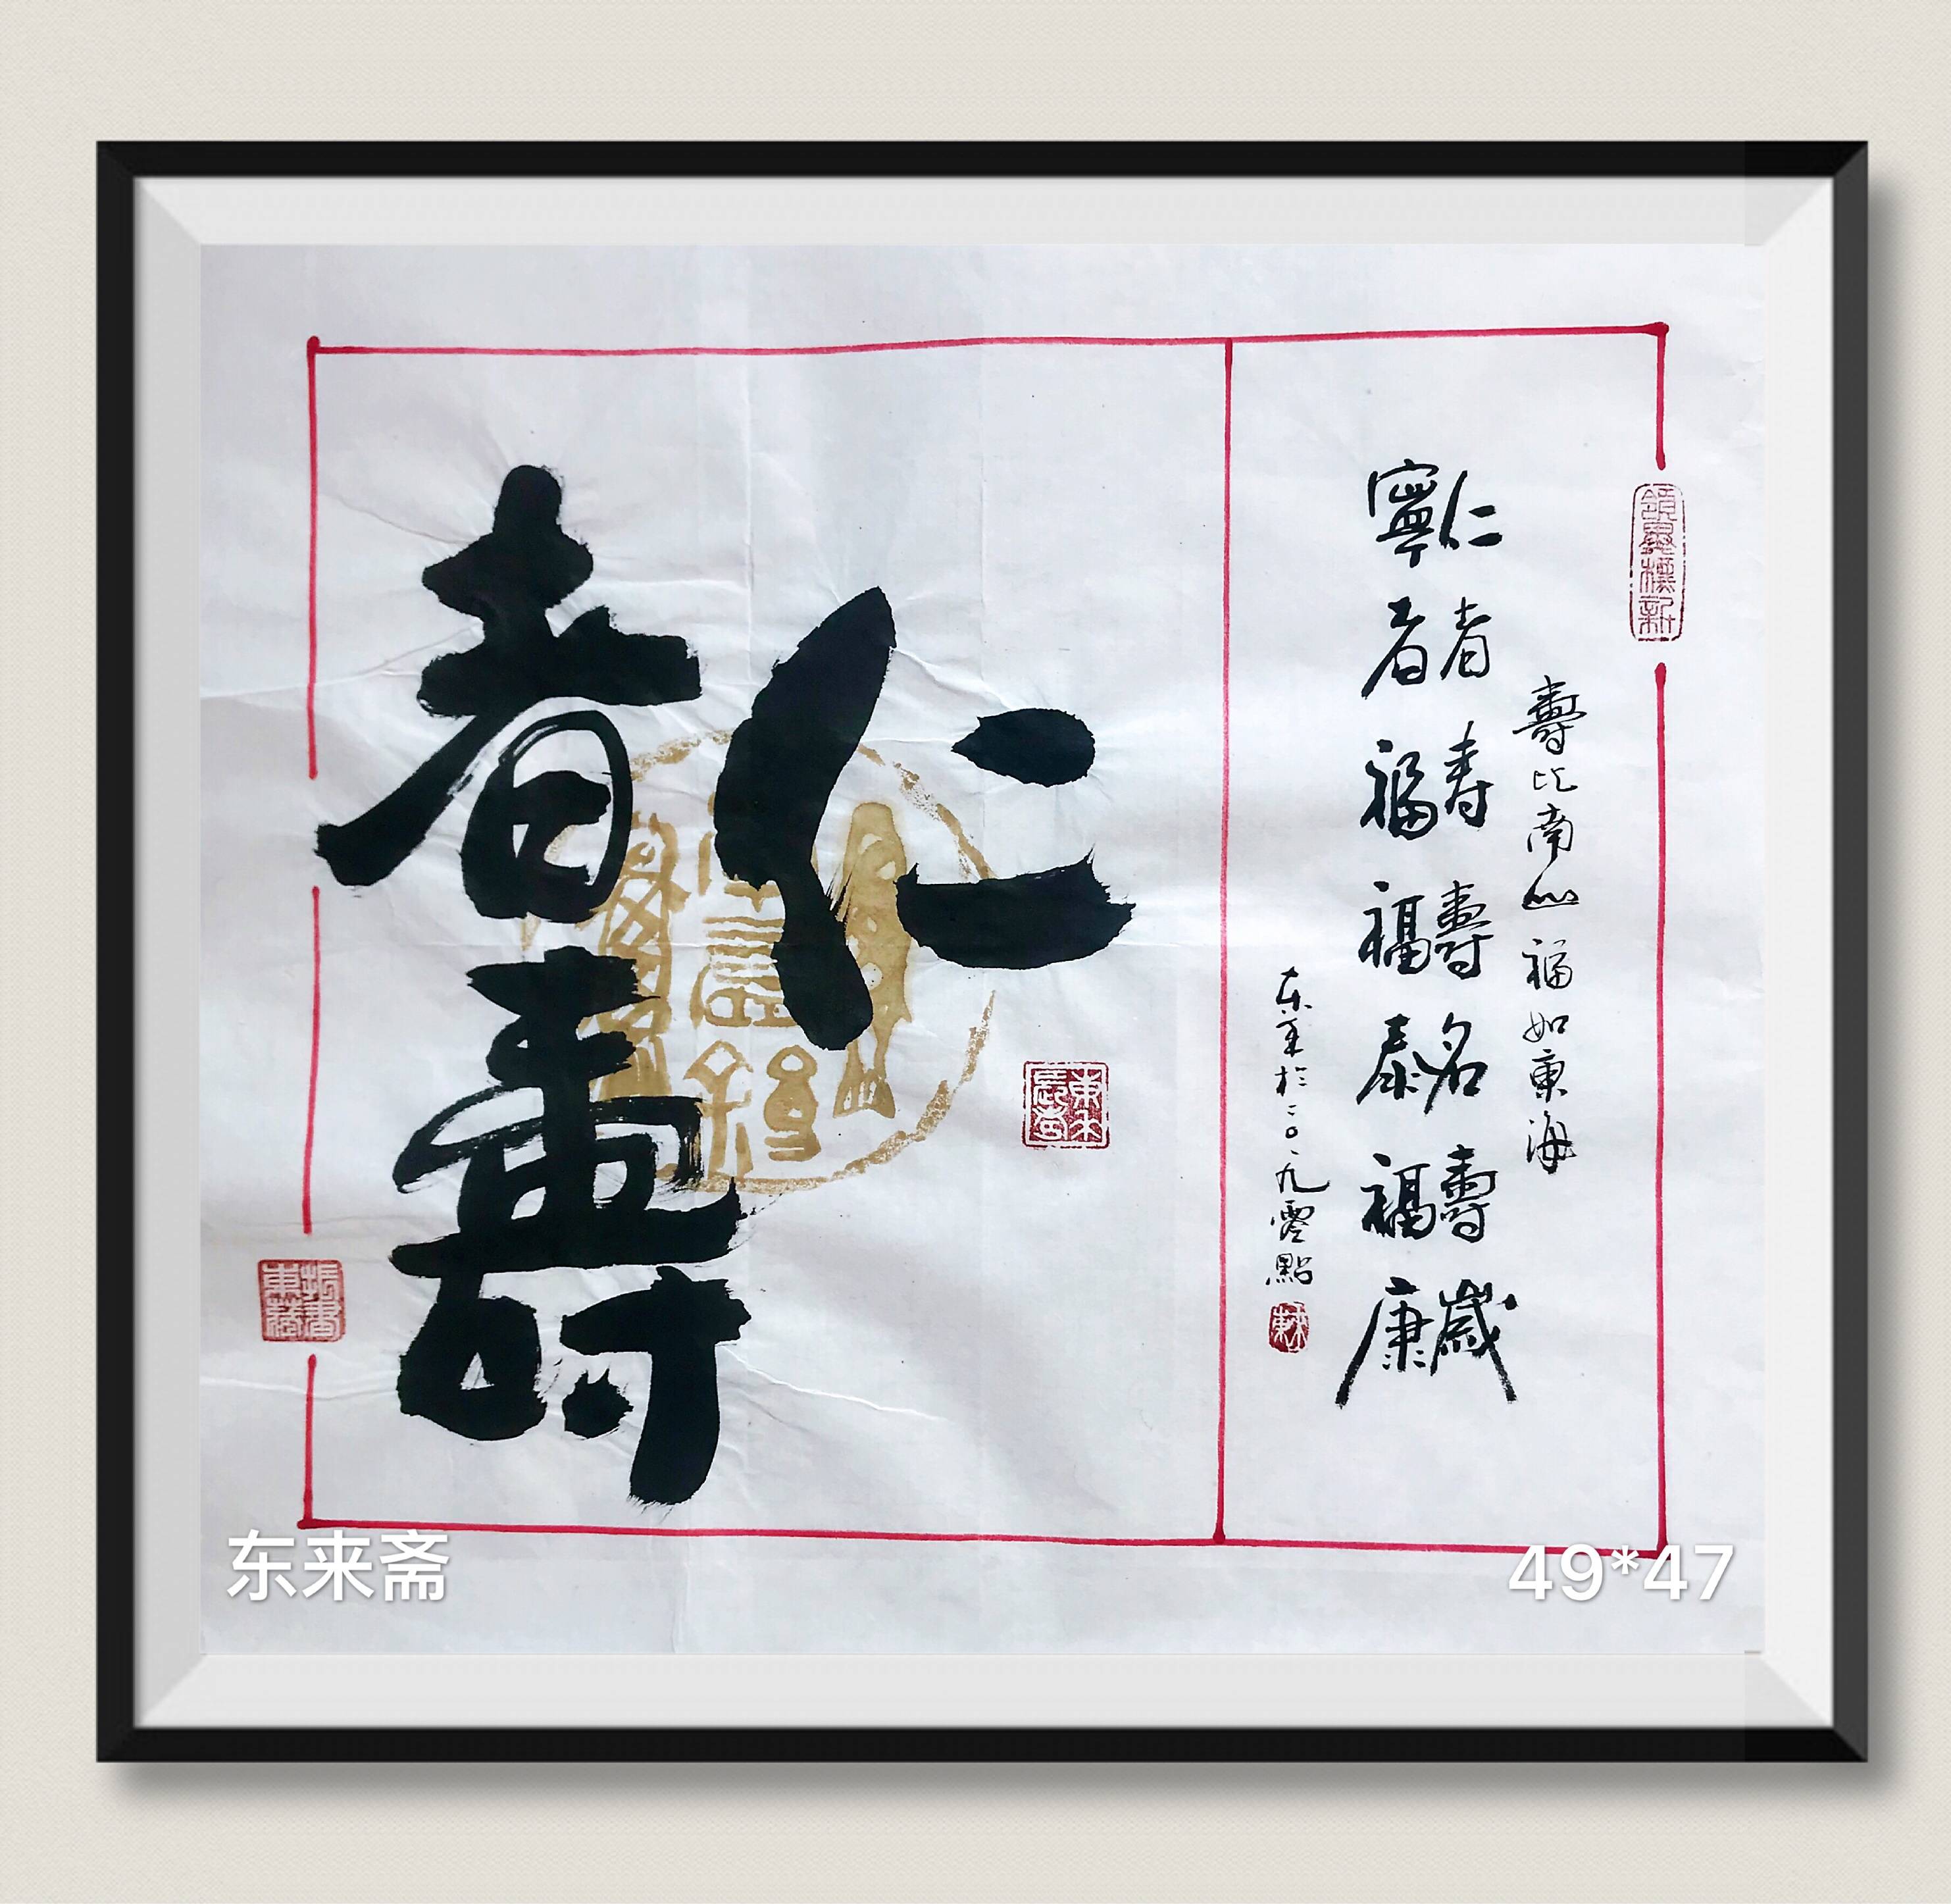 壽比南山福如東海
仁者寿壽名壽歲
寧者福福泰福康
东来於二〇一九零點
仁
者壽
領異標新
东来斋
49*47